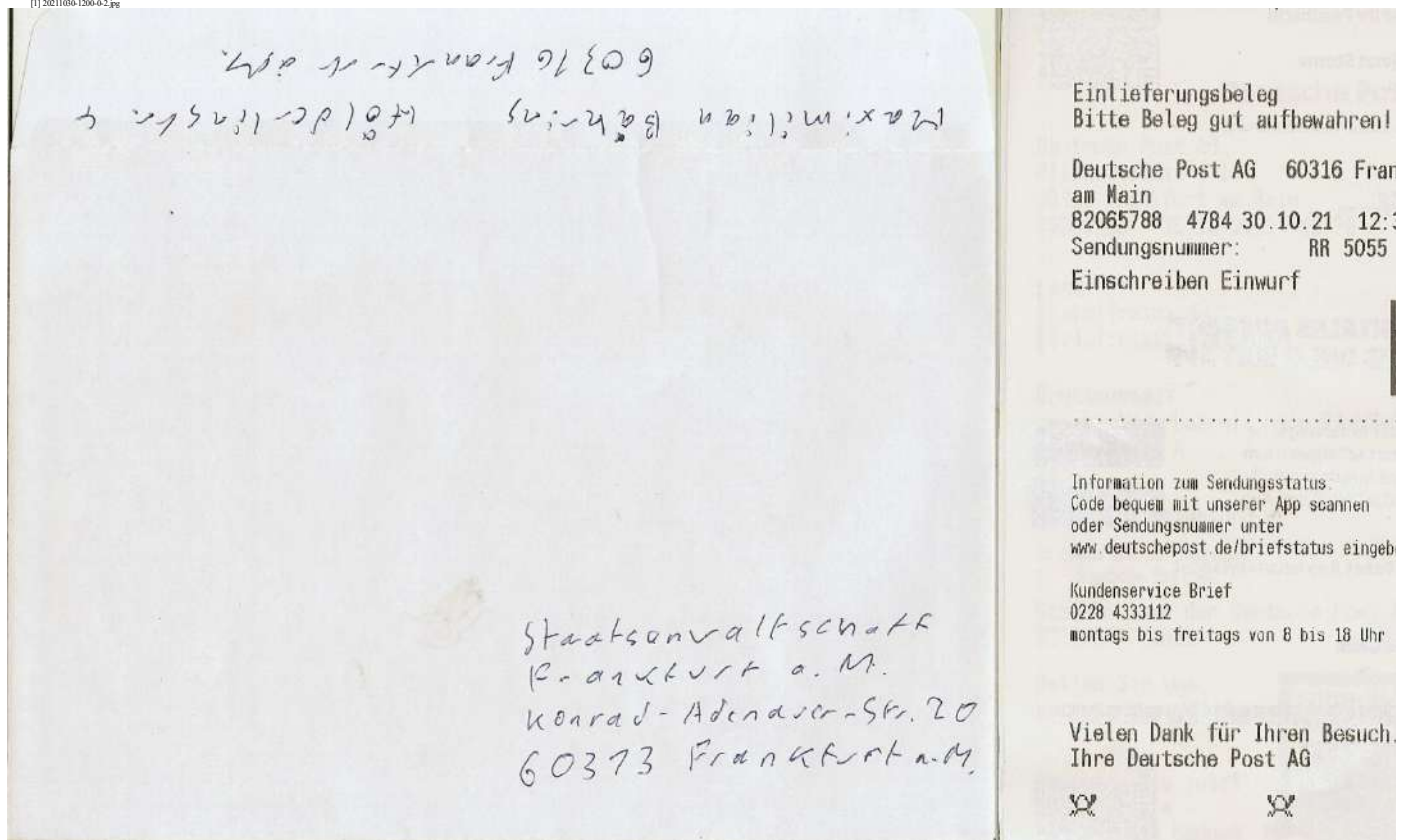 [1] 20211030-1200-0-2.jpg
Maximilian Bähring Hölderlinstr. 4
60316 Frankfurt a.M.
Staatsanwaltschaft
Frankfurt a.M.
Konrad-Adenauer-Str. 20
60313 Frankfurt a.M.
Einlieferungsbeleg
Bitte Beleg gut aufbewahren!
Deutsche Post AG 60316 Fran
am Main
82065788 4784 30.10.21 12:3
Sendungsnummer: RR 5055
Einschreiben Einwurf
Information zum Sendungsstatus:
Code bequem mit unserer App scannen
oder Sendungsnummer unter
www.deutschepost.de/briefstatus eingeb
Kundenservice Brief
0228 4333112
montags bis freitags von 8 bis 18 Uhr
Vielen Dank für Ihren Besuch.
Ihre Deutsche Post AG